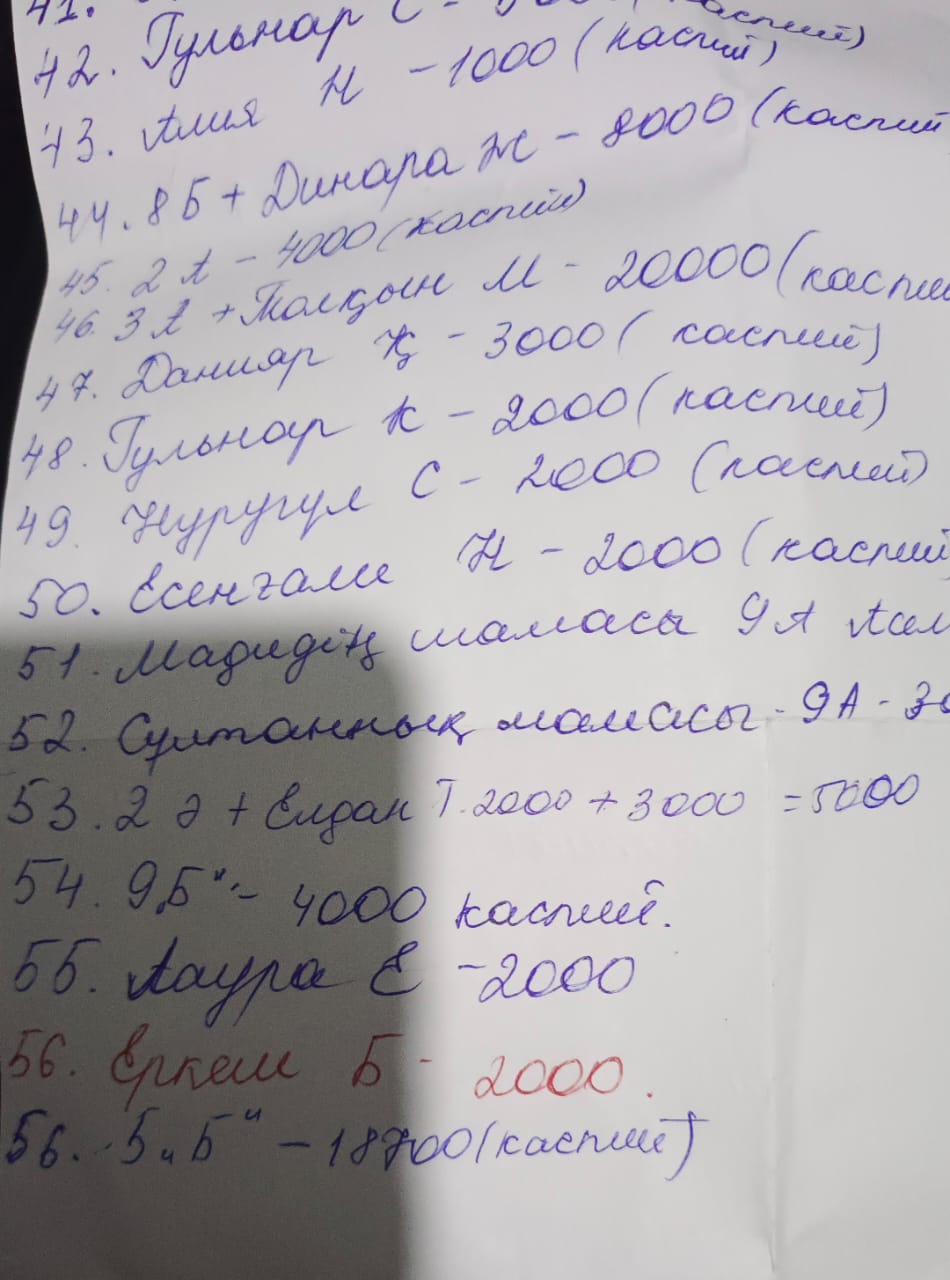 41.
42. Гульнар С - (каспий)
43. Алия Н - 1000 (каспий)
44. 8Б + Динара Ж - 8000 (каспий
45. 2 А - 4000 (каспий)
46. 3 А + Толқын М - 20000 (каспий
47. Данияр Қ - 3000 ( каспий)
48. Гульнар К - 2000 (каспий)
49. Нуругул С - 2000 (каспий)
50. Есенғали Н - 2000 (каспий)
51. Мадидің мамасы 9А
52. Сұлтанның мамасы - 9А - 30
53. 2 Ә + Елдан Т. 2000 + 3000 = 5000
54. 9„Б" - 4000 каспий.
55. Лаура Е - 2000
56. Еркем Б - 2000.
56. 5„Б" - 18700 (каспий)